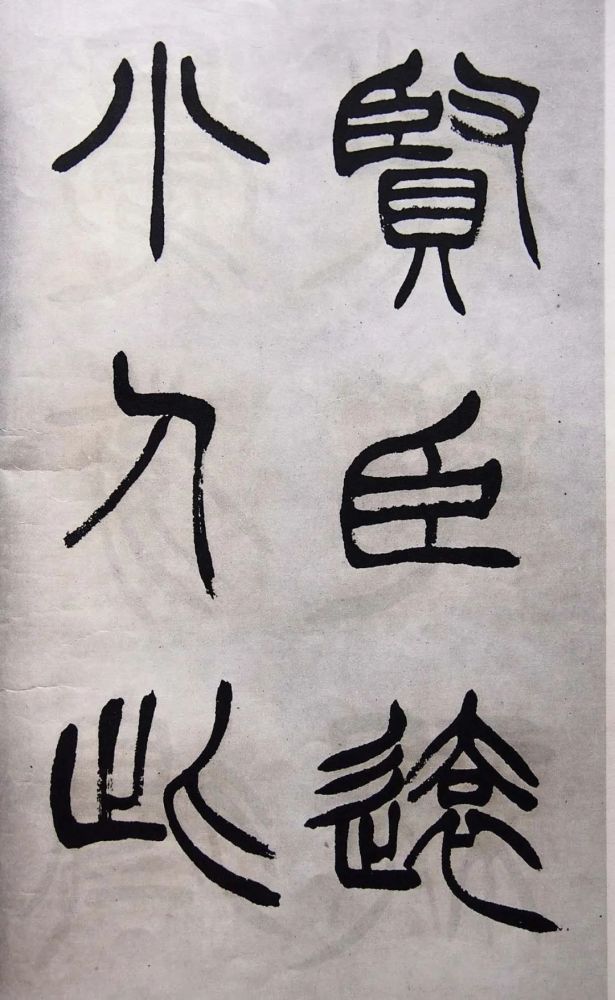 賢臣遠
小人此